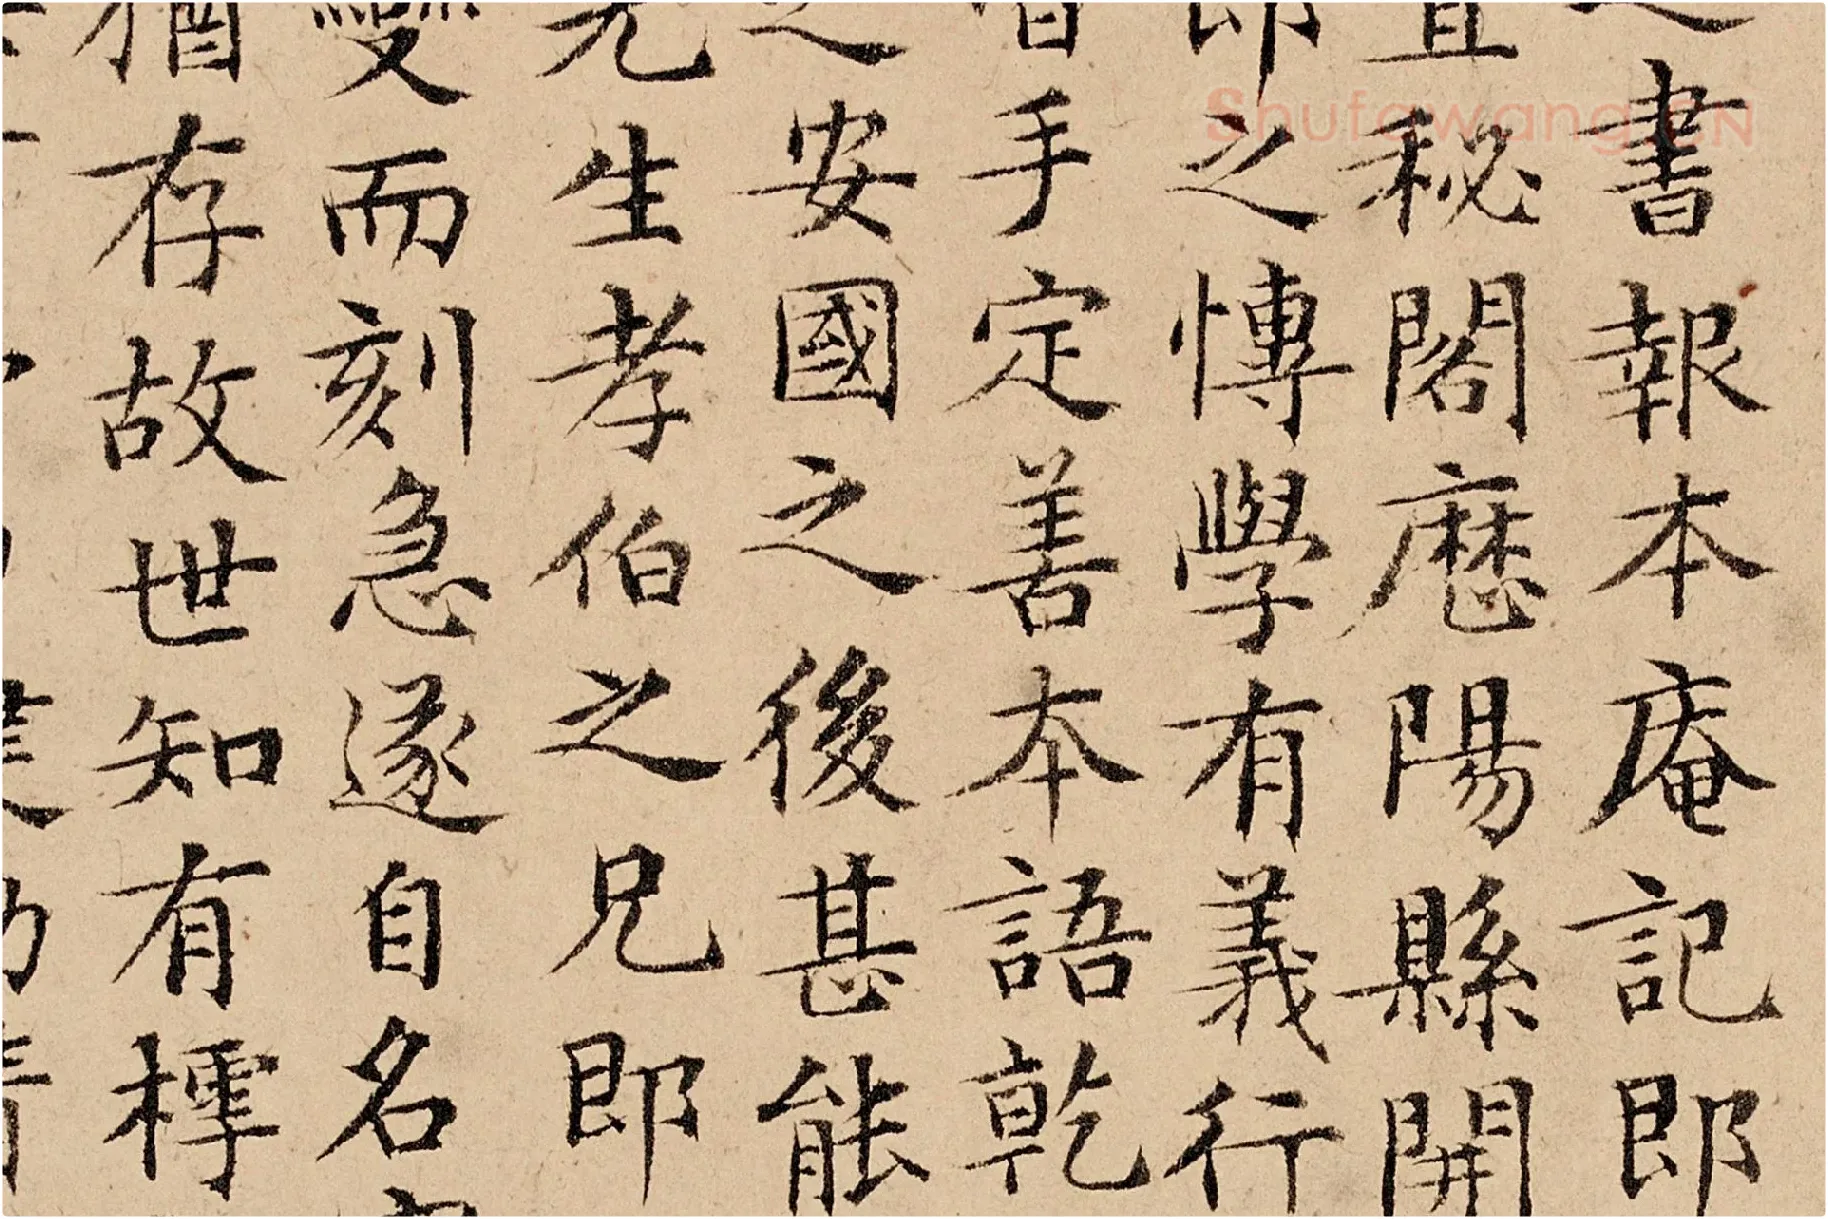 之書報本庵記即
直秘閣歷陽縣開
即之慱學有義行
手定善本語乾
之安國之後甚能
先生孝伯之兄即
變而刻急遂自名
猶存故世知有樗
Shufawang.CN